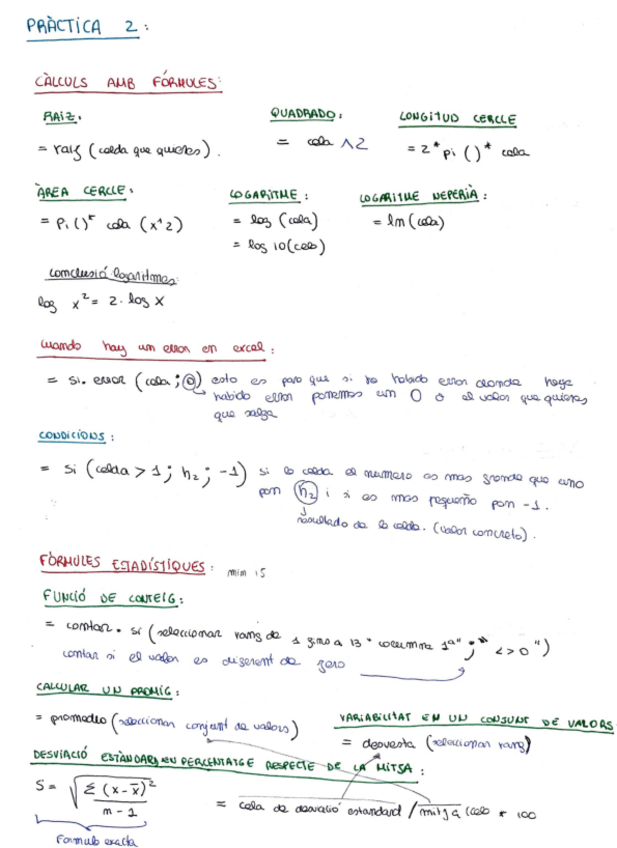 PRÀCTICA 2:
CÀLCULS AMB FÓRMULES:
RAIZ:
QUADRADO:
LONGITUD CERCLE
= raiz (celda que quieres).
= cela ^2
= 2* pi ()* cela
ÀREA CERCLE:
LOGARITME:
LOGARITME NEPERIÀ:
= Pi()* cela (x^2)
= log (cela)
= ln (cela)
= log 10(cela)
conclusió logaritmes:
log x² = 2 · log x
cuando hay un error en excel:
= si. error (cela ; 0) esto es para que si ha habido error donde haya
habido error ponemos un 0 o el valor que quieras
que salga
CONDICIONS:
= si (celda > 1 ; h2 ; -1) si la celda el numero es mas grande que uno
pon h2 i si es mas pequeño pon -1.
resultado de la celda. (valor concreto).
FÓRMULES ESTADÍSTIQUES: min 15
FUNCIÓ DE CONTEIG:
= contar. si (seleccionar rang de 1 fins a 13 "columna 1ª" ; " <> 0 ")
contar si el valor es diferent de zero
CALCULAR UN PROMIG:
= promedio (seleccionar conjunt de valors)
VARIABILITAT EN UN CONJUNT DE VALORS
= desvesta (seleccionar rang)
DESVIACIÓ ESTÀNDARD EN PERCENTATGE RESPECTE DE LA MITJA:
S = √ Σ (x - x̄)² / n - 1
= cela de desviació estandard / mitja (cela * 100
Formula exacta